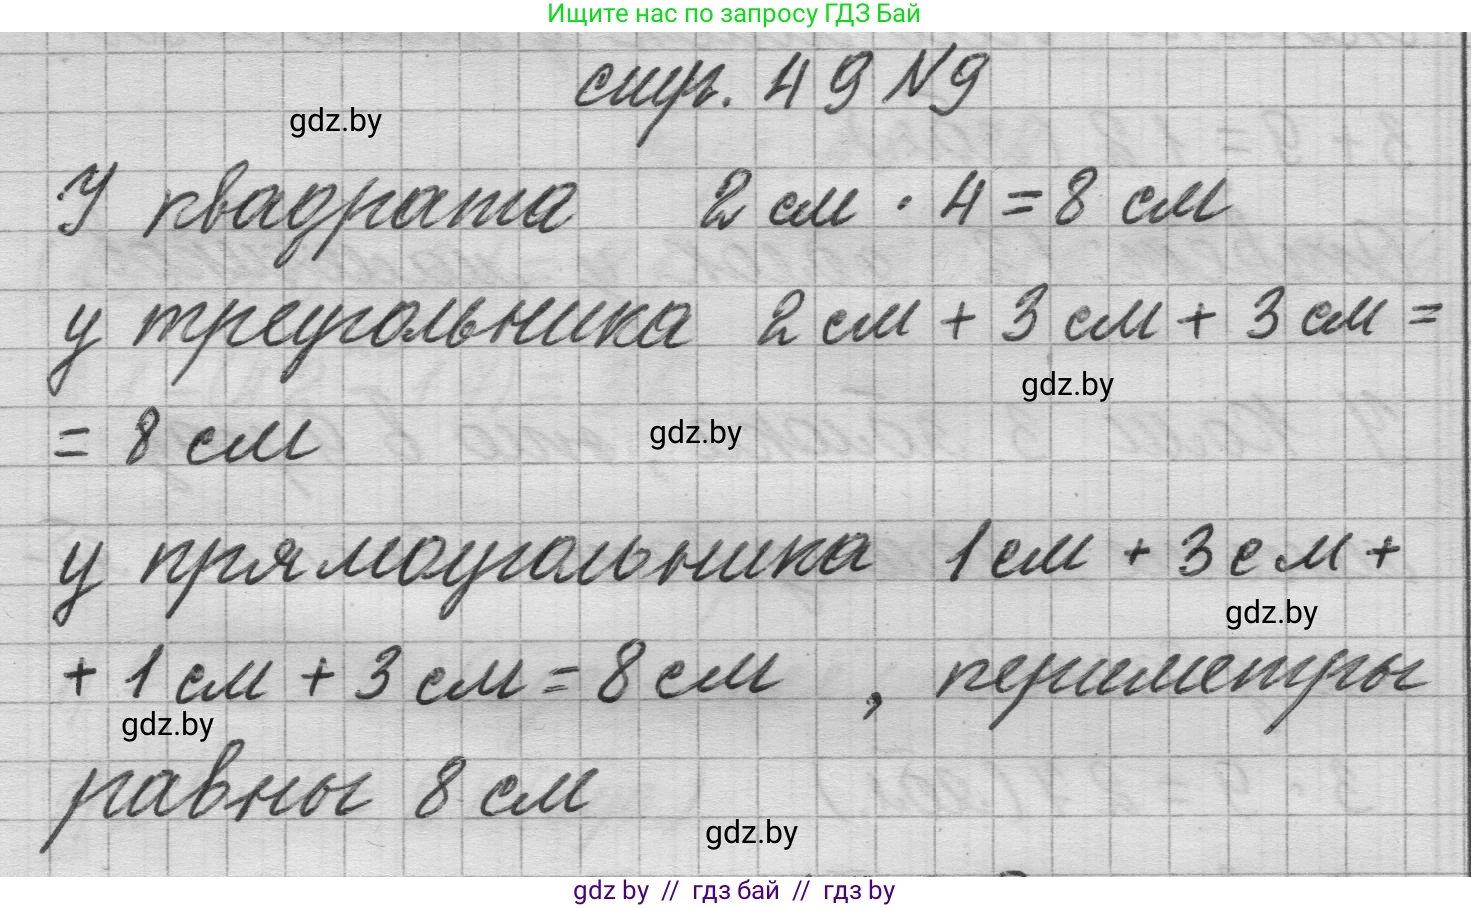 Ищите нас по запросу ГДЗ Бай
стр. 49 №9
gdz.by
У квадрата 2 см · 4 = 8 см
у треугольника 2 см + 3 см + 3 см =
gdz.by
= 8 см
gdz.by
у прямоугольника 1 см + 3 см +
gdz.by
+ 1 см + 3 см = 8 см , периметры
gdz.by
равны 8 см
gdz.by
gdz by // гдз бай // гдз by